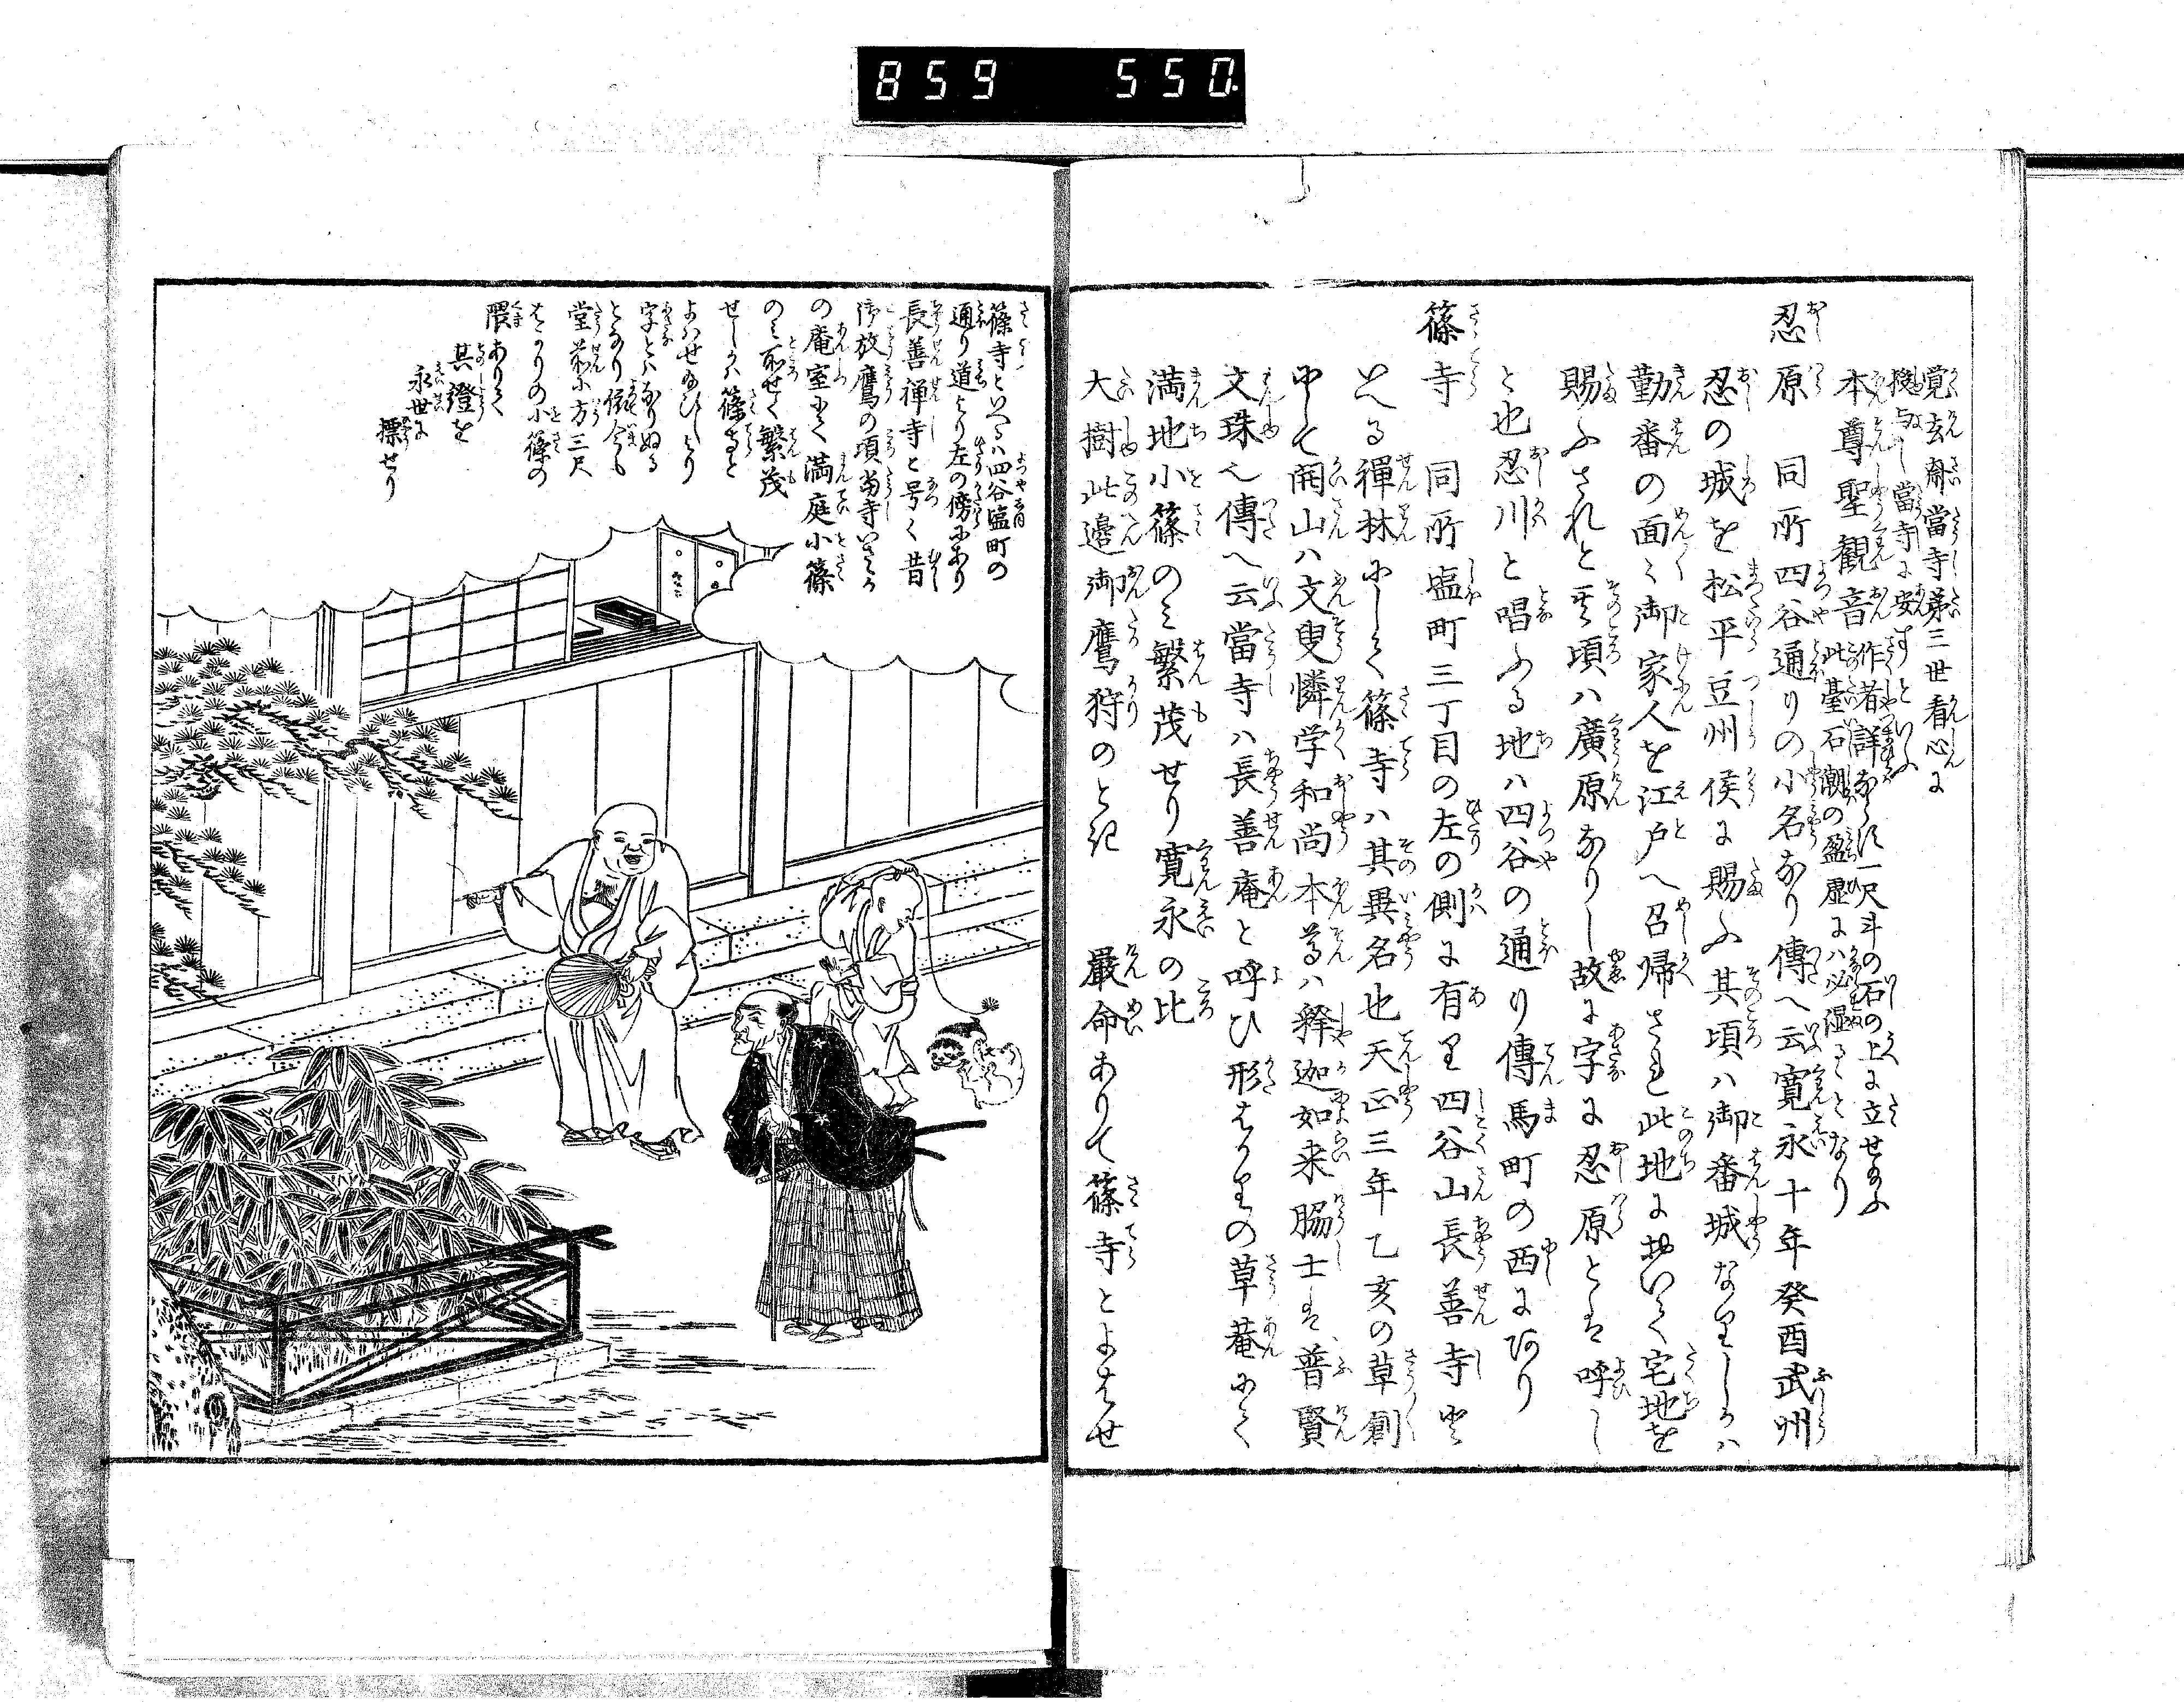 859 550
覚玄斎當寺第三世看心に
授与し當寺に安すといふ
本尊聖観音作者詳ならす一尺斗の石の上に立せ給ふ
此臺石潮の盈虚には必湿ることなり
忍原 同所四谷通りの小名なり傳へ云寛永十年癸酉武州
忍の城を松平豆州侯に賜ふ其頃ハ御番城なりしかハ
勤番の面々御家人を江戸へ召帰され此地におゐて宅地を
賜ふされと其頃ハ廣原なりし故に字に忍原とは呼し
と也忍川と唱ふる地ハ四谷の通り傳馬町の西にあり
篠寺 同所塩町三丁目の左の側に有り四谷山長善寺と
いへる禪林にして篠寺ハ其異名也天正三年乙亥の草創
にして開山ハ文叟憐学和尚本尊ハ釋迦如来脇士は普賢
文珠也傳へ云當寺ハ長善庵と呼ひ形はかりの草菴にて
満地小篠のミ繁茂せり寛永の比
大樹此邉御鷹狩のとき 嚴命ありて篠寺とよはせ
篠寺といへるハ四谷塩町の
通り道より左の傍にあり
長善禅寺と号く昔
御放鷹の頃當寺いさゝか
の庵室にて満庭小篠
のミ所せく繁茂
せしかハ篠寺と
よハせ給ひしより
字とハなりぬる
となり依今も
堂前に方三尺
はかりの小篠の
隈ありて
其證を
永世に
標せり